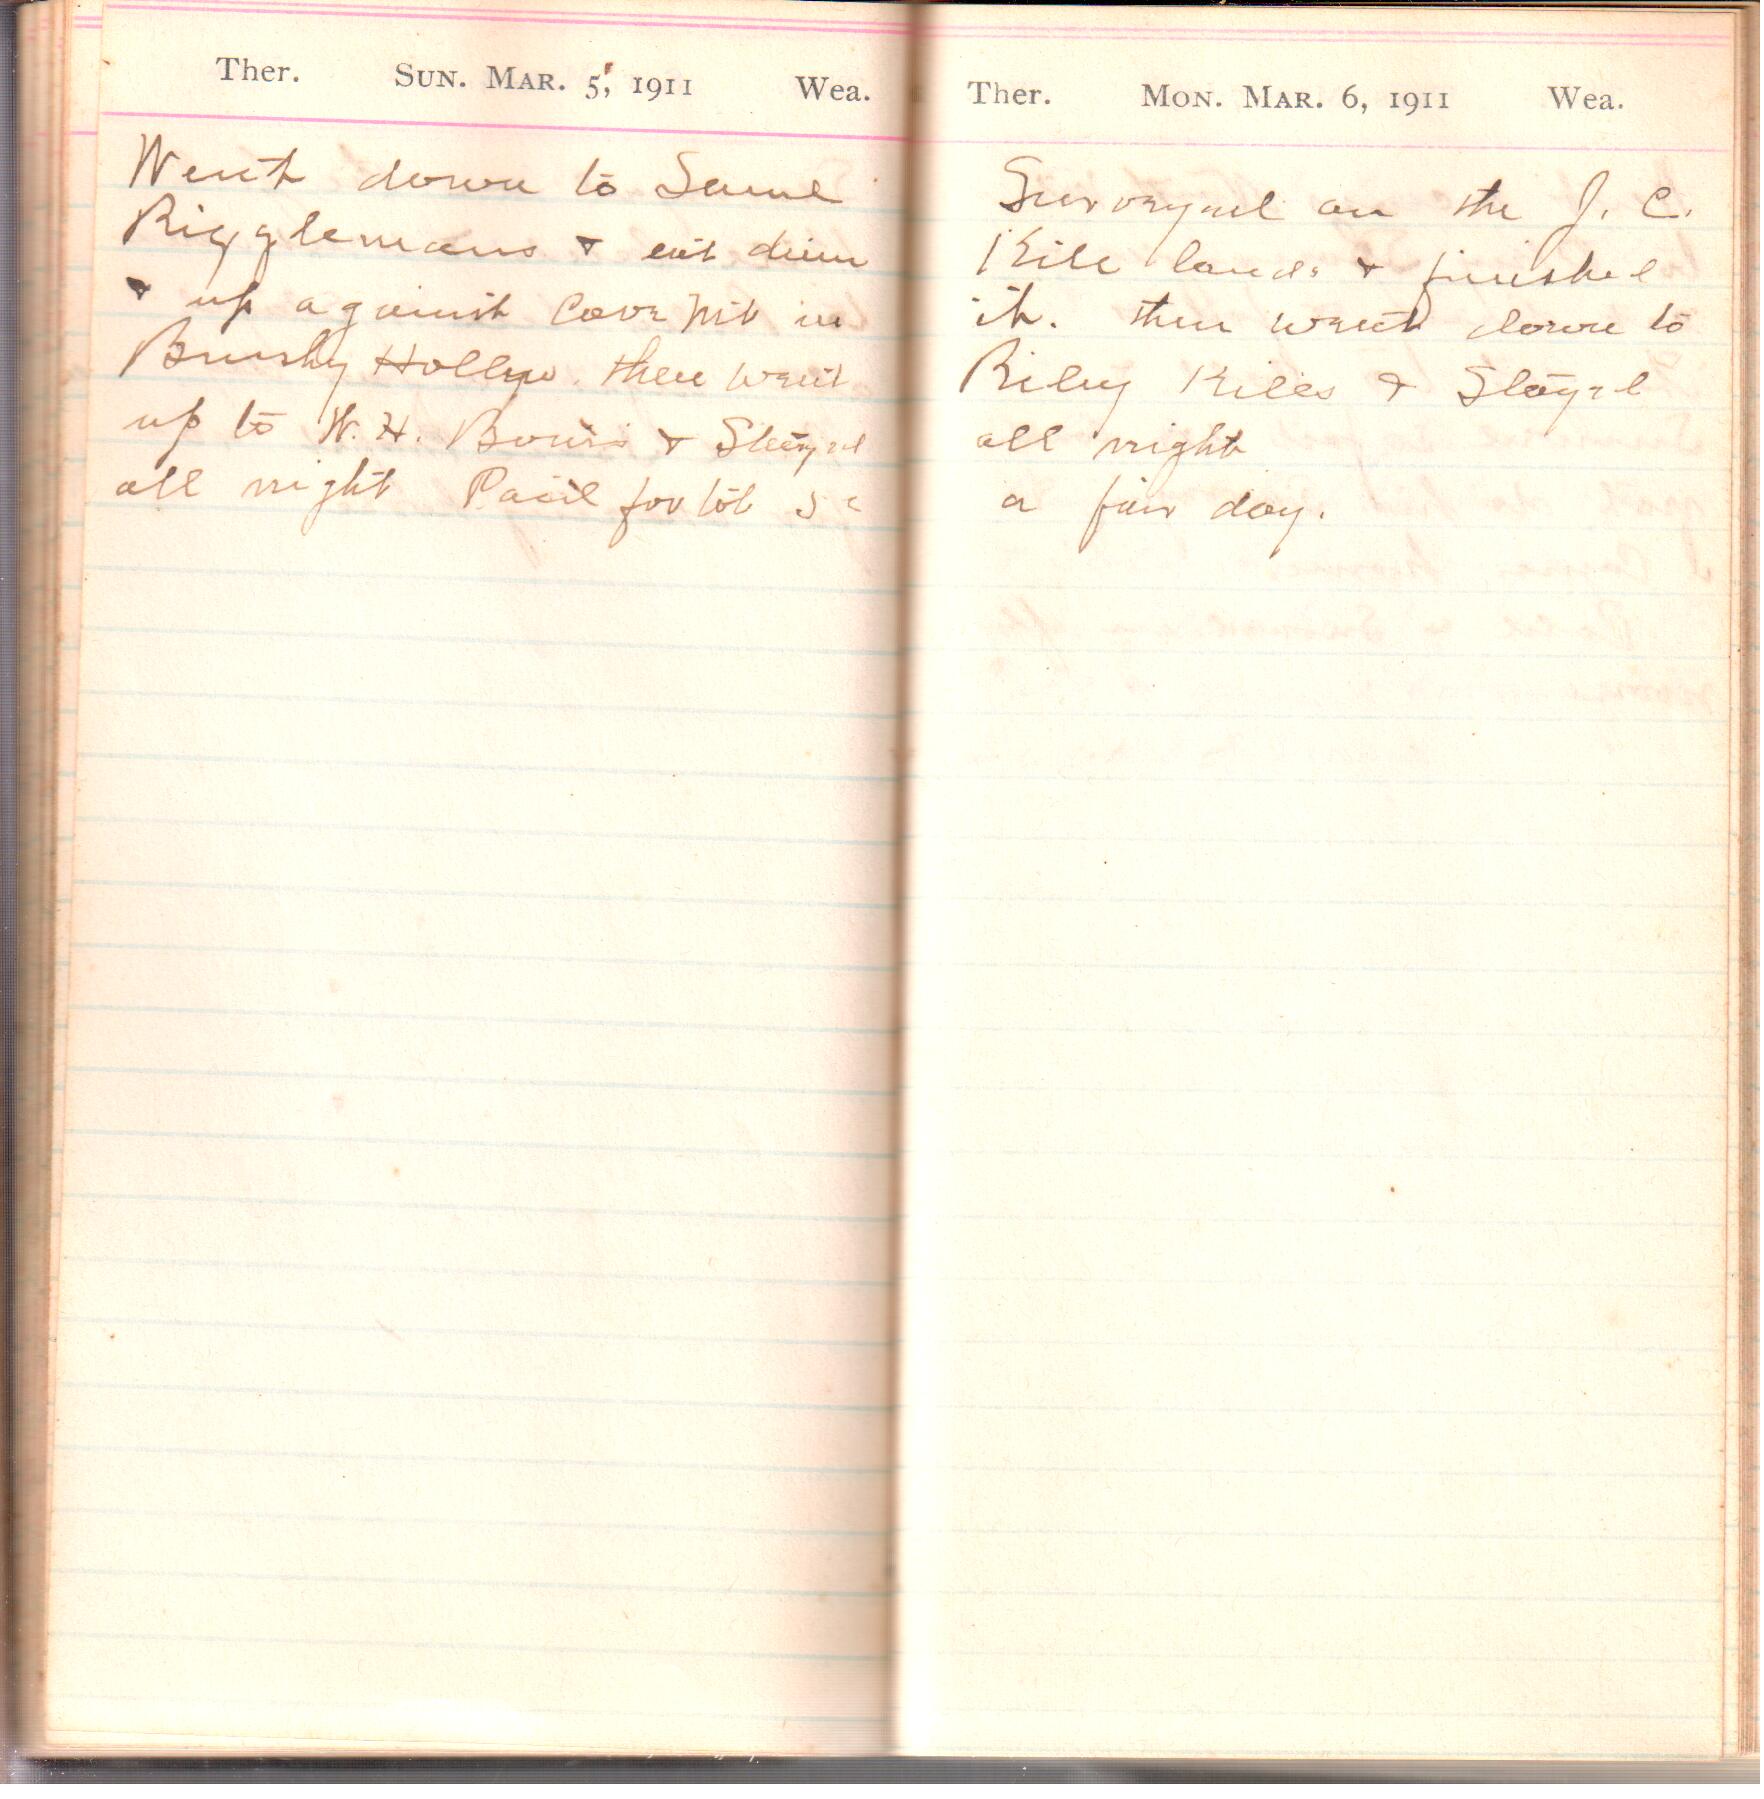 Ther. Sun. Mar. 5, 1911 Wea.
Went down to Saml
Rigglemans & eat dinn
& up against Cove Mt in
Brushy Hollow. then went
up to W. H. & Stayed
all night Paid for tob 5 c
Ther. Mon. Mar. 6, 1911 Wea.
Surveyed on the J. C.
Kile lands & finished
it. then went down to
Riley Kiles & Stayed
all night
a fair day.